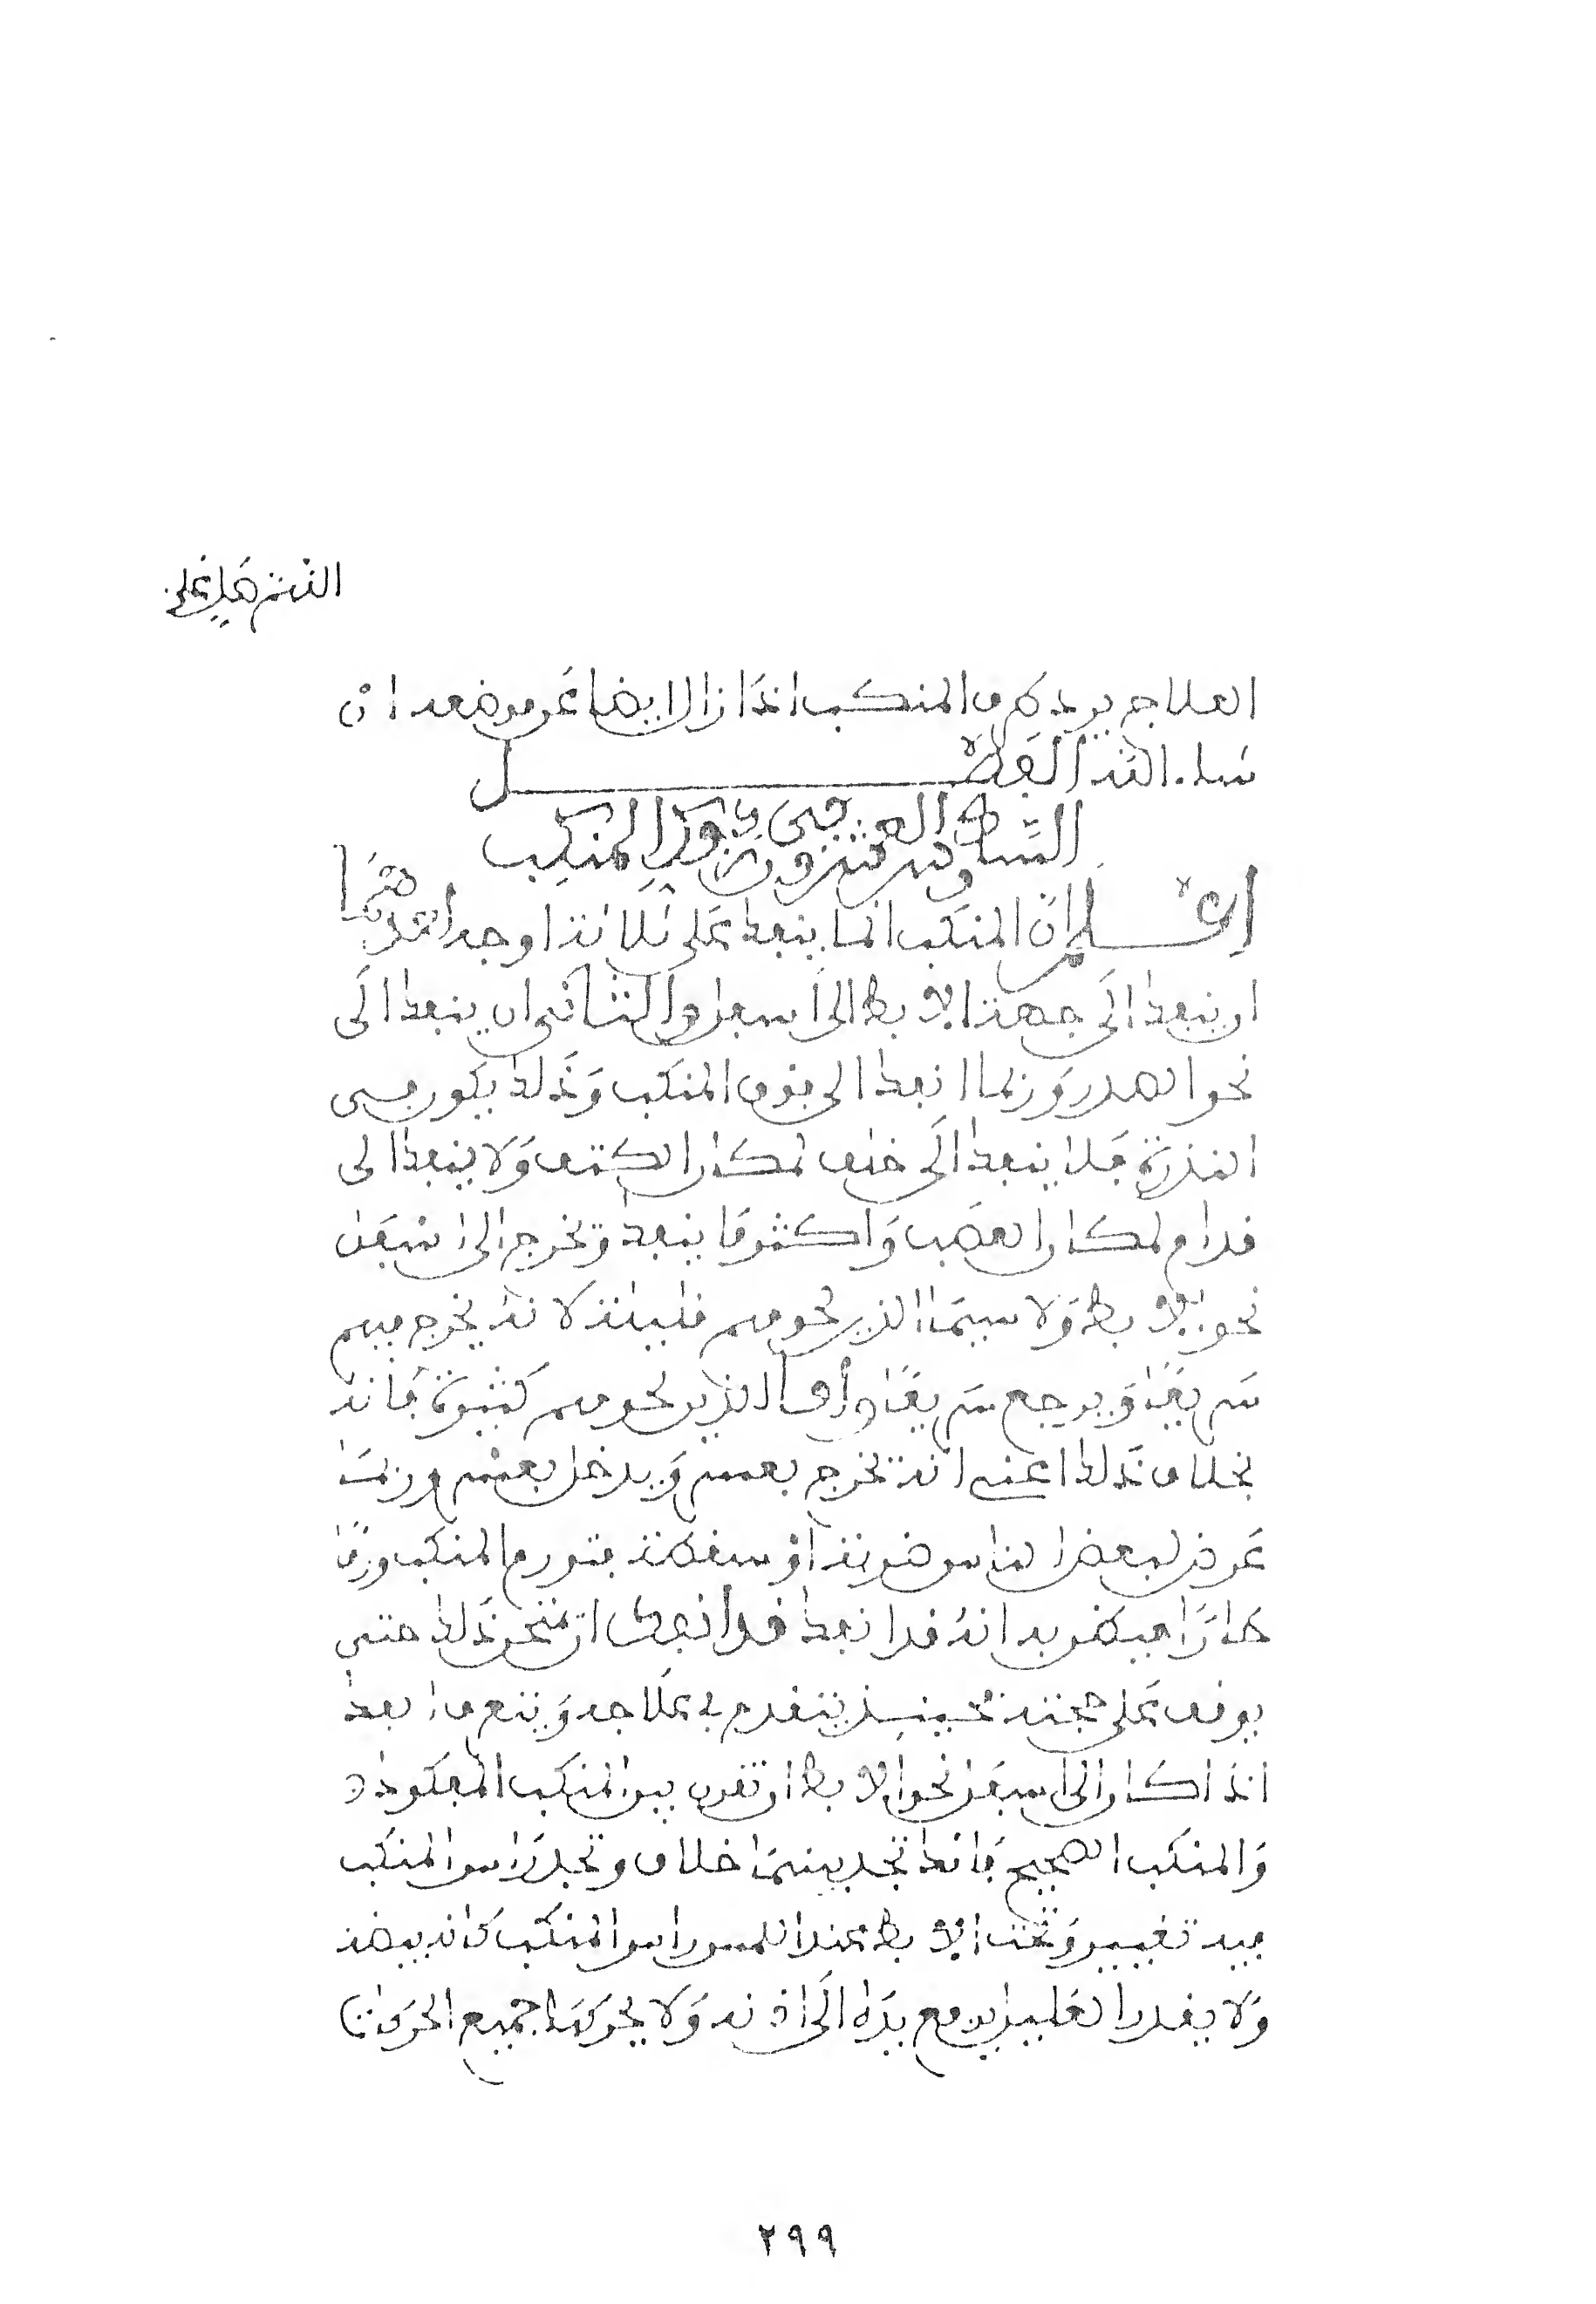 العلاج يرد طرف المنكب اذا زال ايضا عن موضعه ان
شاء الله الفصل
السادس والعشرون في فك المنكب
اعلم ان المنكب انما ينفك على ثلاثة اوجه احدها
ان ينفك الى جهة الابط الى اسفل والثاني ان ينفك الى
نحو الصدر وربما انفك الى فوق المنكب وذلك يكون في
الندرة فلا ينفك الى خلف لمكان الكتف ولا ينفك الى
قدام لمكان العصب واكثر ما ينفك وتخرج الى اسفل
نحو الابط ولا سيما الذين لحومهم قليلة لانه يخرج فيهم
سريعا ويرجع سريعا واما الذين لحومهم كثيرة فانه
بخلاف ذلك اعني انه تخرج بعسر ويدخل بعسر وربما
عرض لبعض الناس ضربة او سقطة فتورم المنكب ورما
حارا فيظن به انه قد انفك فد انفك ان تمتحن ذلك حتى
يوقف على صحته فحينئذ يتقدم في علاجه ويتعرف افك
اذا كان الى اسفل نحو الابط ان تقرن بين المنكب المفكوك
والمنكب الصحيح فانك تجد بينهما خلاف وتجد راس المنكب
فيه تقعير وتحت الابط عند اللمس راس المنكب كانه بيضة
ولا يقدر العليل ان يرفع يده الى اذنه ولا يحركها جميع الحركات
٢٩٩